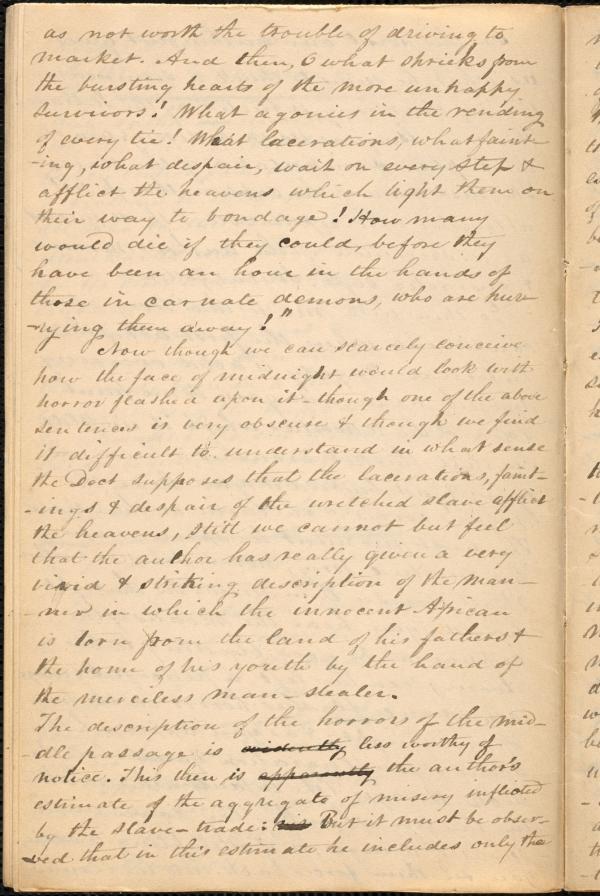 as not worth the trouble of driving to
market. And then, O what shrieks from
the bursting hearts of the more unhappy
survivors! What agonies in the rending
of every tie! What lacerations, what faint-
-ing, what despair, wait on every step &
afflict the heavens which light them on
their way to bondage! How many
would die if they could, before they
have been an hour in the hands of
those in carnate demons, who are hur-
-rying them away!"
Now though we can scarcely conceive
how the face of midnight would look with
horror flashed upon it - though one of the above
sentences is very obscure & though we find
it difficult to understand in what sense
the Doct supposes that the lacerations, faint-
-ings & despair of the wretched slave afflict
the heavens, still we cannot but feel
that the author has really given a very
vivid & striking description of the man-
-ner in which the innocent African
is torn from the land of his fathers &
the home of his youth by the hand of
the merciless man-stealer.
The description of the horrors of the mid-
-dle passage is evidently less worthy of
notice. This then is apparently the author's
estimate of the aggregate of misery inflicted
by the slave-trade: his But it must be obser-
-ved that in this estimate he includes only the